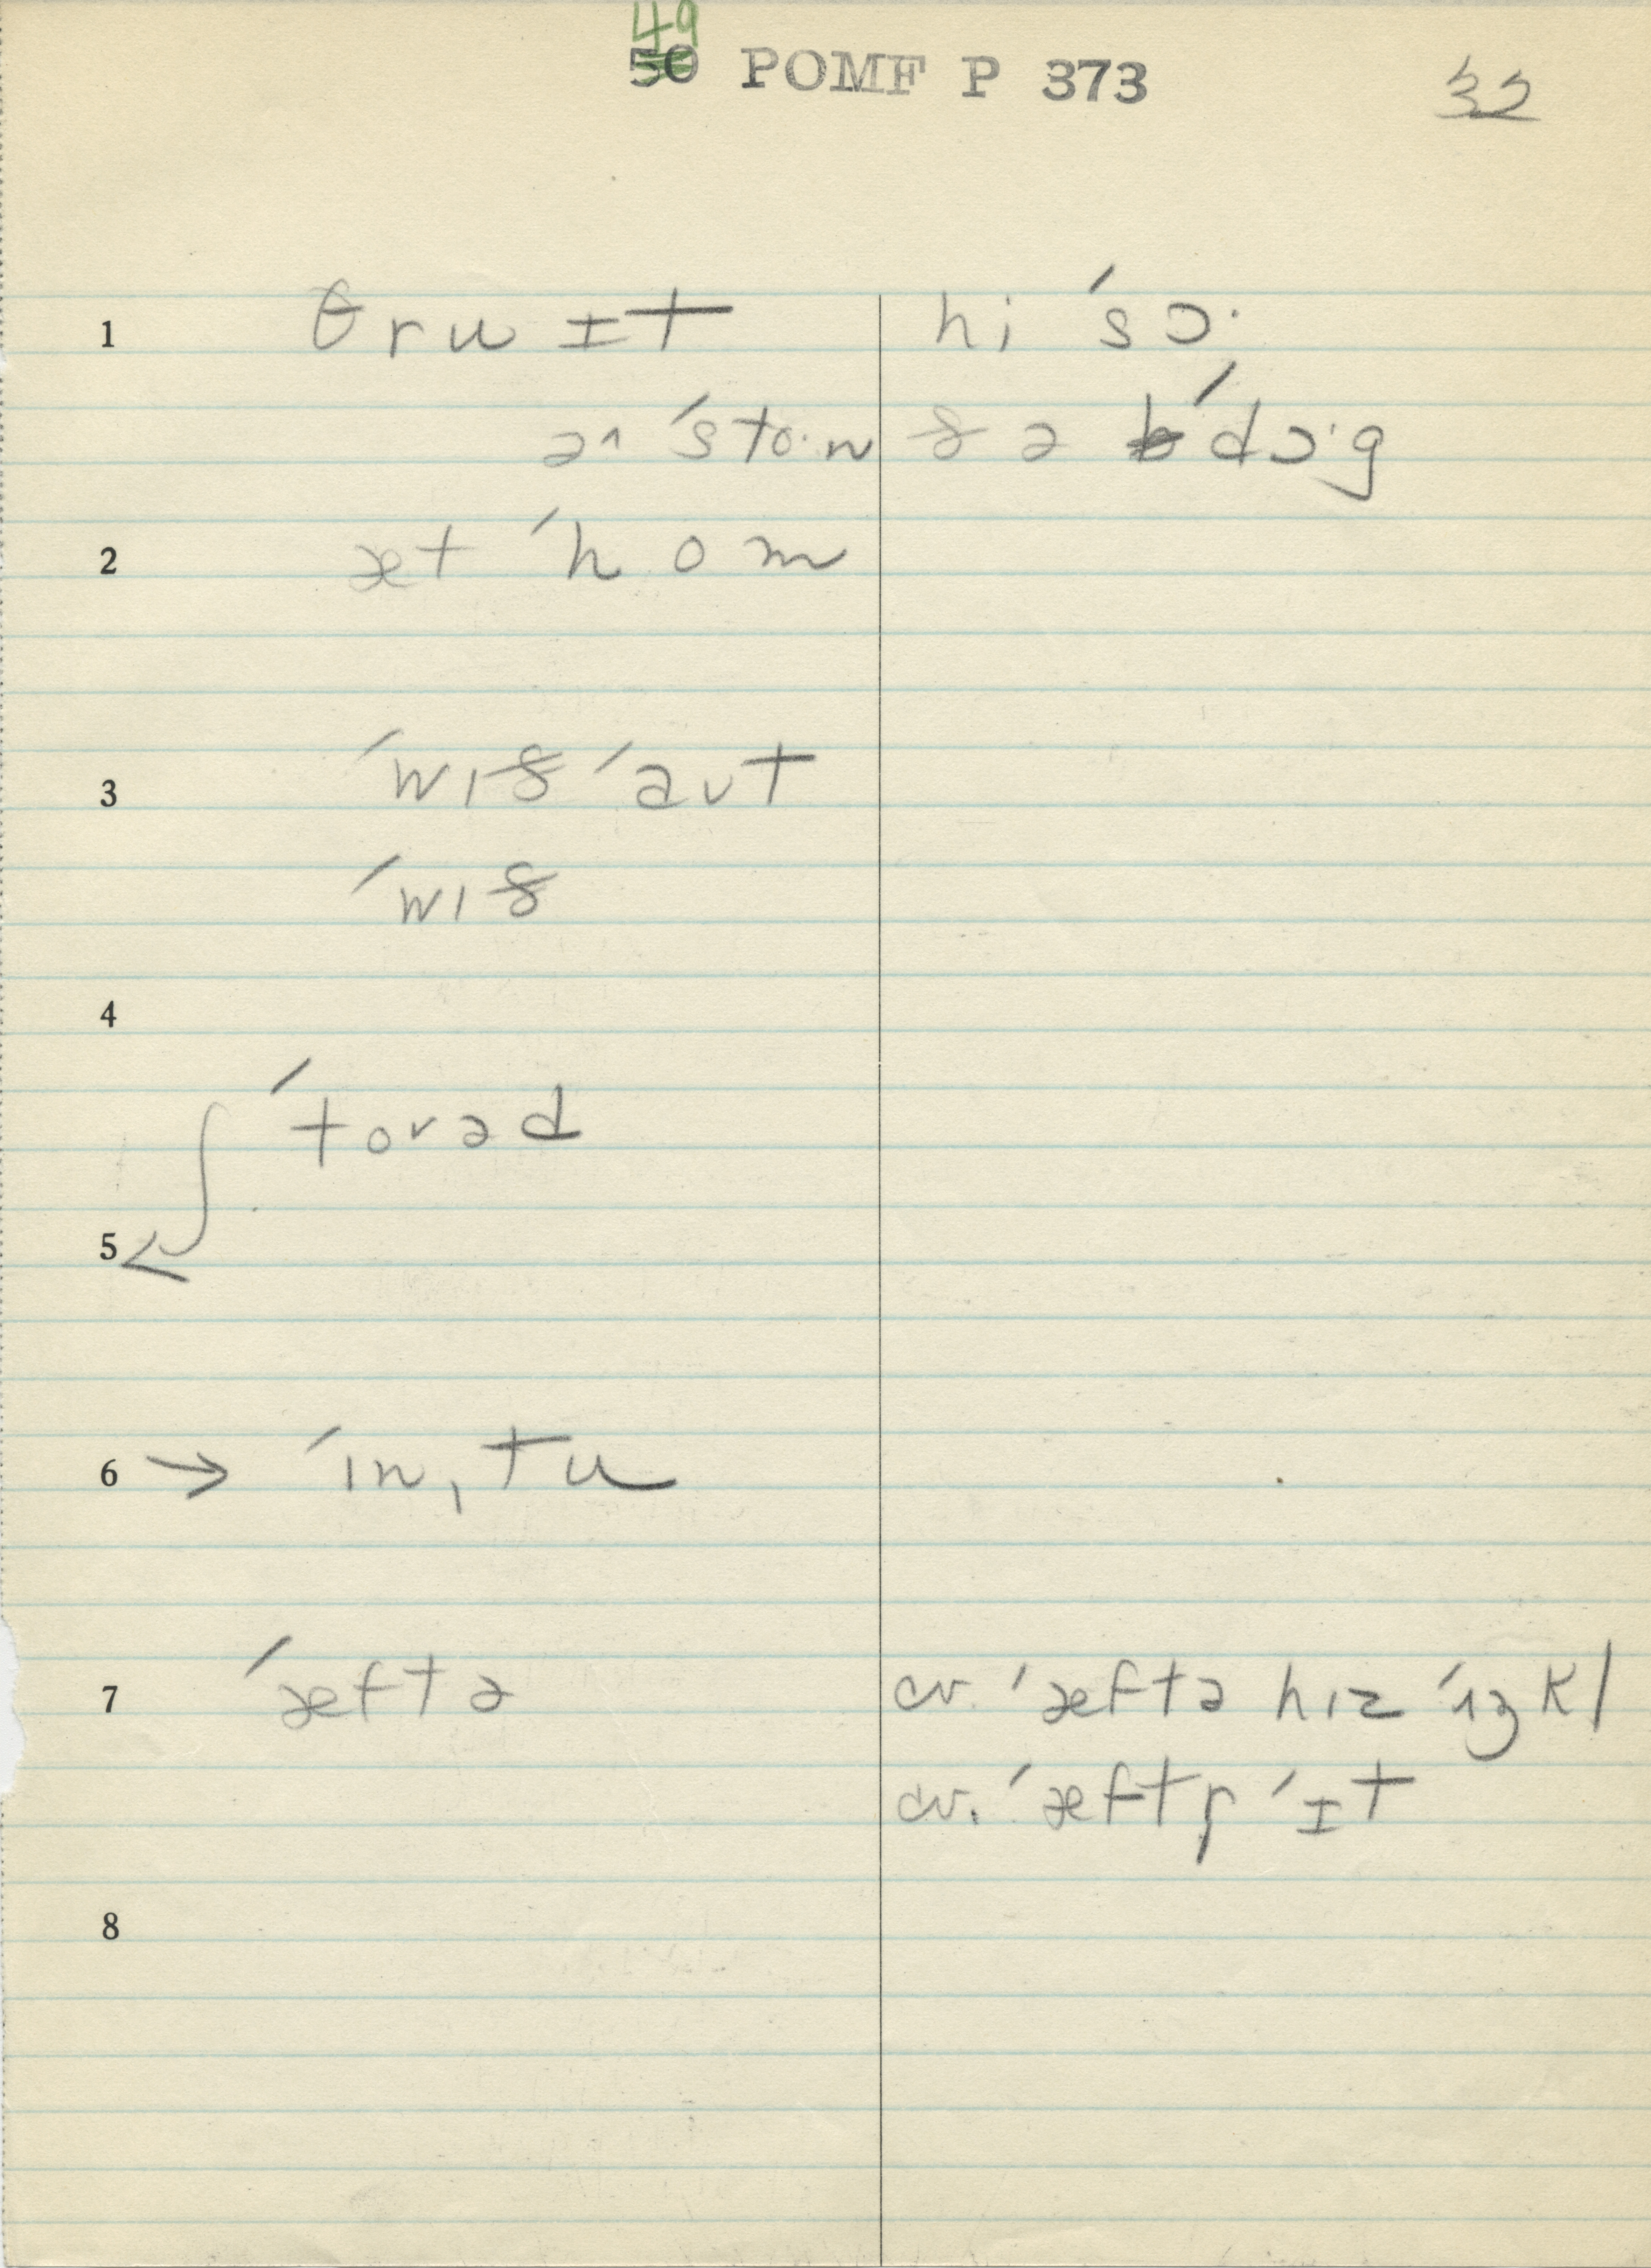 49
50 POMF P 373
32
1 θru ɪt hi ˈsɔ·
ə ˈsto·n ðə ˈdɔ·g
2 æt ˈhom
3 ˈwɪð ˈaʊt
ˈwɪð
4
ˈtorəd
5
6 → ˈɪn ˌtu
7 ˈæftə cv. ˈæftə hɪz ˈɪʒkl
cv. ˈæftɚ ˈɪt
8